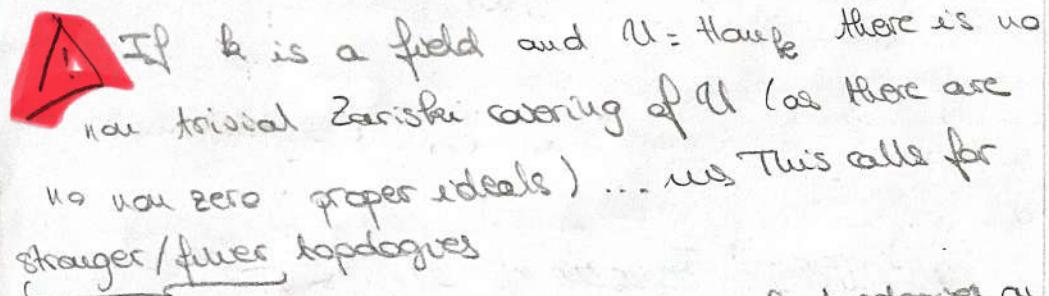 ! If k is a field and U = Hom_k there is no
non trivial Zariski covering of U (as there are
no non zero proper ideals) ... ⇝ This calls for
stronger/finer topologies